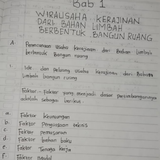 Bab 1
WIRAUSAHA KERAJINAN
DARI BAHAN LIMBAH
BERBENTUK BANGUN RUANG
A Perencanaan Usaha kerajinan dari Bahan Limbah
berbentuk Bangun ruang
1. Ide dan Peluang Usaha kerajinan dari Bahan
Limbah bangun ruang
Faktor - Faktor yang menjadi dasar pengembangannya
adalah sebagai berikut
a Faktor keuangan
b Faktor Pengadaan teknis
c Faktor pemasaran
d Faktor bahan baku
e Faktor Tenaga kerja
Faktor modal